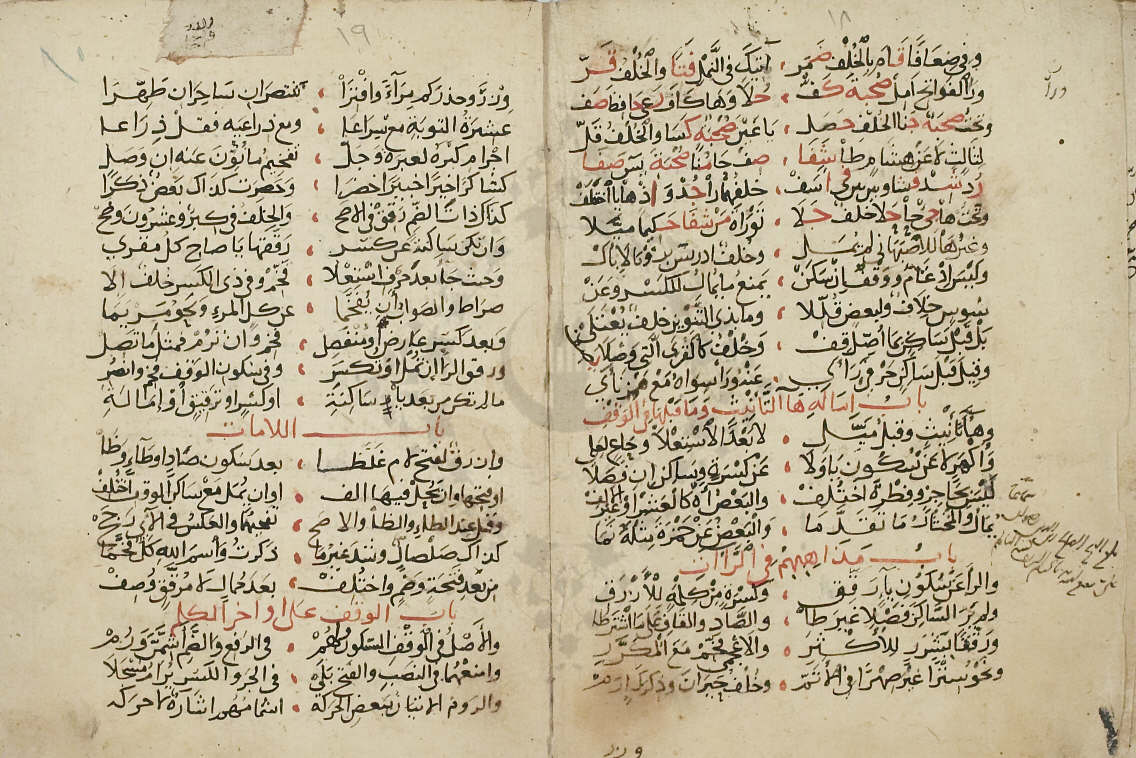 ١٨
وفي ضعافا قام بالخلف ضمر ، آتيك في النمل فتا والخلف قر
ورا الفواتح امل صحبة كف ، حلا وها كاف رعى حافظ صف
وتحت صحبة جنا الخلف حصل ، يا عين صحبة كسا والخلف قل
لثالث لا عن هشام طا شفا ، صف حا منا صحبة يس صفا
رد شد فشا وبين بين في اسف ، خلفهما را جد واذ ها يا اختلف
وتحت ها جي حا حلا خلف جلا ، توراة من شفا حكيما ميلا
وغيرها للاصبهاني لم يمل ، وخلف ادريس برؤيا لا بال
وليس ادغام ووقف ان سكن ، يمنع ما يمال للكسر وعن
سوس خلاف ولبعض قللا ، وما بذي التنوين خلف يعتلى
بل قبل ساكن بما اصل قف ، وخلف كالقرى التي وصلا يصف
وقيل قبل ساكن حرفي رأى ، عنه ورا سواه مع همز نأي
باب امالة ها التأنيث وما قبلها في الوقف
وهاء تأنيث وقبل ميل ، لا بعد الاستعلا وحاع لعلي
واكهر لا عن سكون يا ولا ، عن كسرة وساكن ان فصلا
ليس بحاجز وفطرة اختلف ، والبعض اه كالعشر او غير الالف
يمال والمختار ما تقدما ، والبعض عن حمزة مثله نما
باب مذاهبهم في الراات
والرا عن سكون يا رقق ، وكسرة من كلمة للازرق
ولم ير الساكن فصلا غير طا ، والصاد والقاف على ما اشترطا
ورققن بشرر للاكثر ، والاعجمي فخم مع المكرر
ونحو سترا غير صهرا في الاتم ، وخلف حيران وذكرك ارم
وزر
١٩
وزر وحذركم مراء وافترا ، تنتصران ساحران طهرا
عشيرة التوبة مع سراعا ، ومع ذراعيه فقل ذراعا
اجرام كبره لعبرة وجل ، تفخيم ما نون عنه ان وصل
كشاكرا خيرا خبيرا خضرا ، وحصرت كذاك بعض ذكرا
كذاك ذات الضم رقق في الاصح ، والخلف في كبر وعشرون وضح
وان تكن ساكنة عن كسر ، رققها يا صاح كل مقري
وحيث جا بعد حرف استعلا ، فخم وفي ذي الكسر خلف الا
صراط والصواب ان يفخما ، عن كل المرء ونحو مريما
وبعد كسر عارض او منفصل ، فخم وان ترم فمثل ما تصل
ورقق الرا ان تمل او تكسر ، وفي سكون الوقف فخم وانصر
ما لم تكن من بعد يا ساكنة ، او كسر او ترقيق او امالة
باب اللامات
وازرق لفتح لام غلظا ، بعد سكون صاد او طاء وظا
او فتحها وان يحل فيها الف ، او ان تمل مع ساكن الوقف اختلف
وقيل عند الطاء والظا والاصح ، تفخيمها والعكس في الآي رجح
كذاك صلصال وشذ غير ما ، ذكرت واسم الله كل فخما
من بعد فتحة وضم واختلف ، بعد ممال لا مرقق وصف
باب الوقف على اواخر الكلم
والاصل في الوقف السكون ولهم ، في الرفع والضم اشممنه ورم
وامنعهما في النصب والفتح بلى ، في الجر والكسر يرام مسجلا
والروم الاتيان ببعض الحركة ، اشمامهم اشارة لا حركة